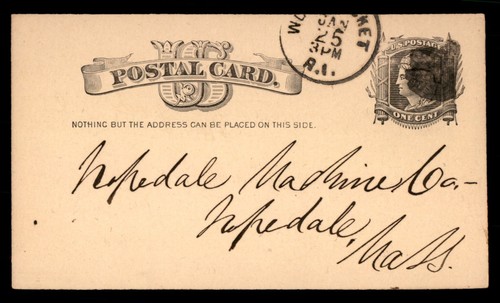 U.S. POSTAGE
POSTAL CARD.
JAN
25
3PM
R.I.
ONE CENT
NOTHING BUT THE ADDRESS CAN BE PLACED ON THIS SIDE.
Hopedale Machine Co.-
Hopedale,
Mass.